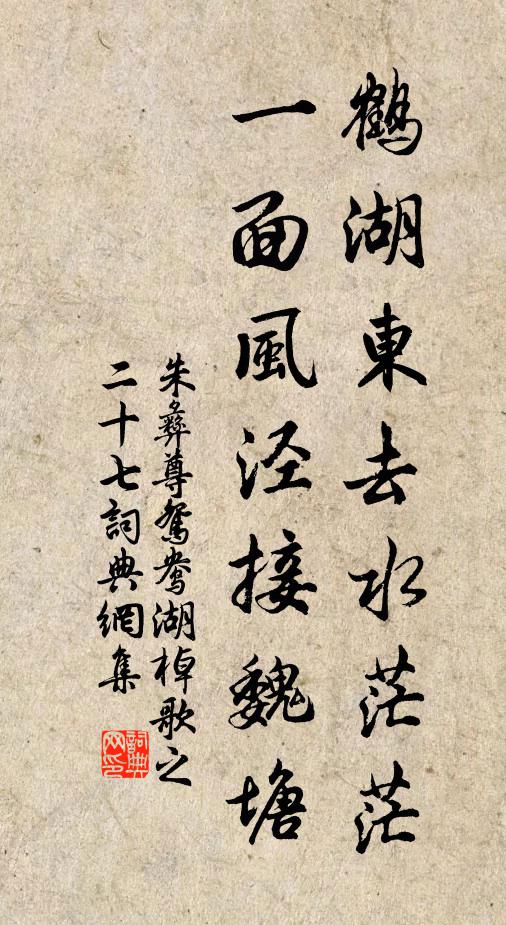 鶴湖東去水茫茫
一面風泾接魏塘
朱彝尊鴛鴦湖棹歌之
二十七詞典網集
詞典网印